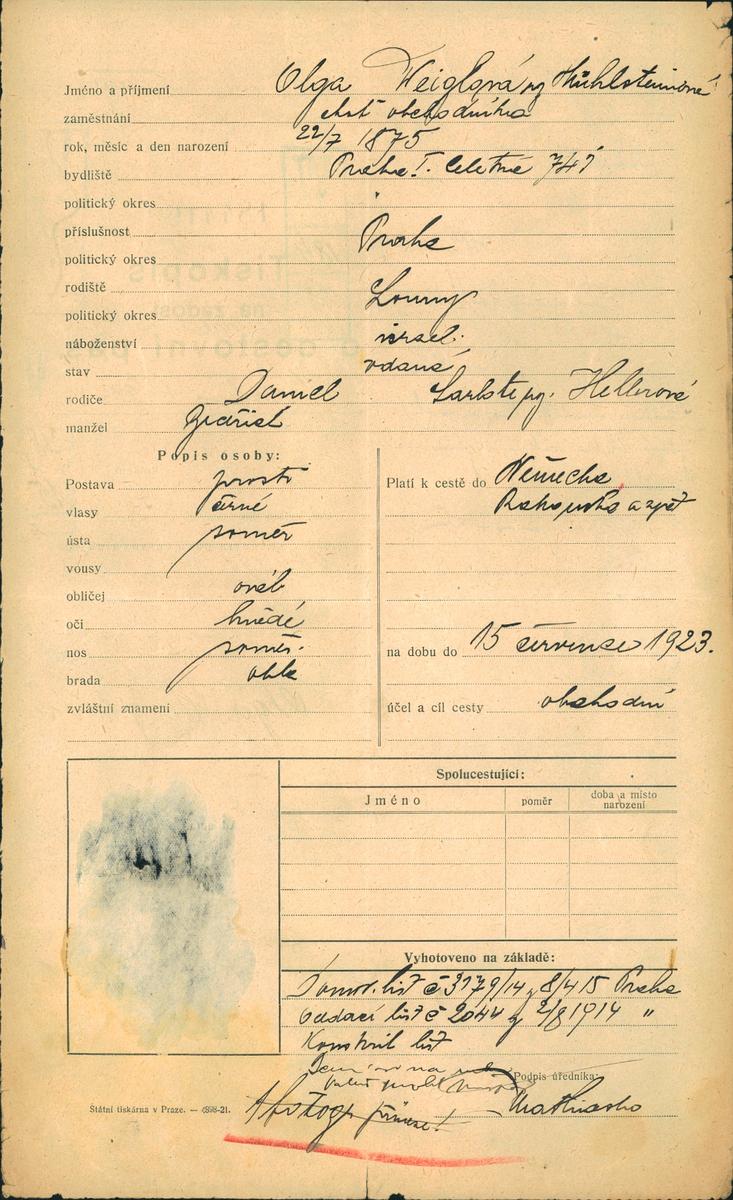 Jméno a příjmení Olga Weiglová roz. Mühlsteinová
zaměstnání choť obchodníka
rok, měsíc a den narození 22/7 1875
bydliště Praha I. Celetná
politický okres
příslušnost Praha
politický okres
rodiště Louny
politický okres
náboženství israel.
stav vdaná
rodiče Daniel Hellerová
manžel Jindřich
Popis osoby:
Postava prostř
vlasy černé
ústa souměr
vousy
obličej ovál
oči hnědé
nos souměr.
brada oblá
zvláštní znamení
Platí k cestě do Německa
Rakouska a zpět
na dobu do 15 července 1923.
účel a cíl cesty obchodní
Spolucestující:
Jméno poměr doba a místo narození
Vyhotoveno na základě:
Domov. list č 3179/14 z 8/4 15 Praha
Oddací list č 2044 z 2/8 1914 "
Konskrib list
Podpis úředníka:
1 fotogr.
Státní tiskárna v Praze. — 4898-21.